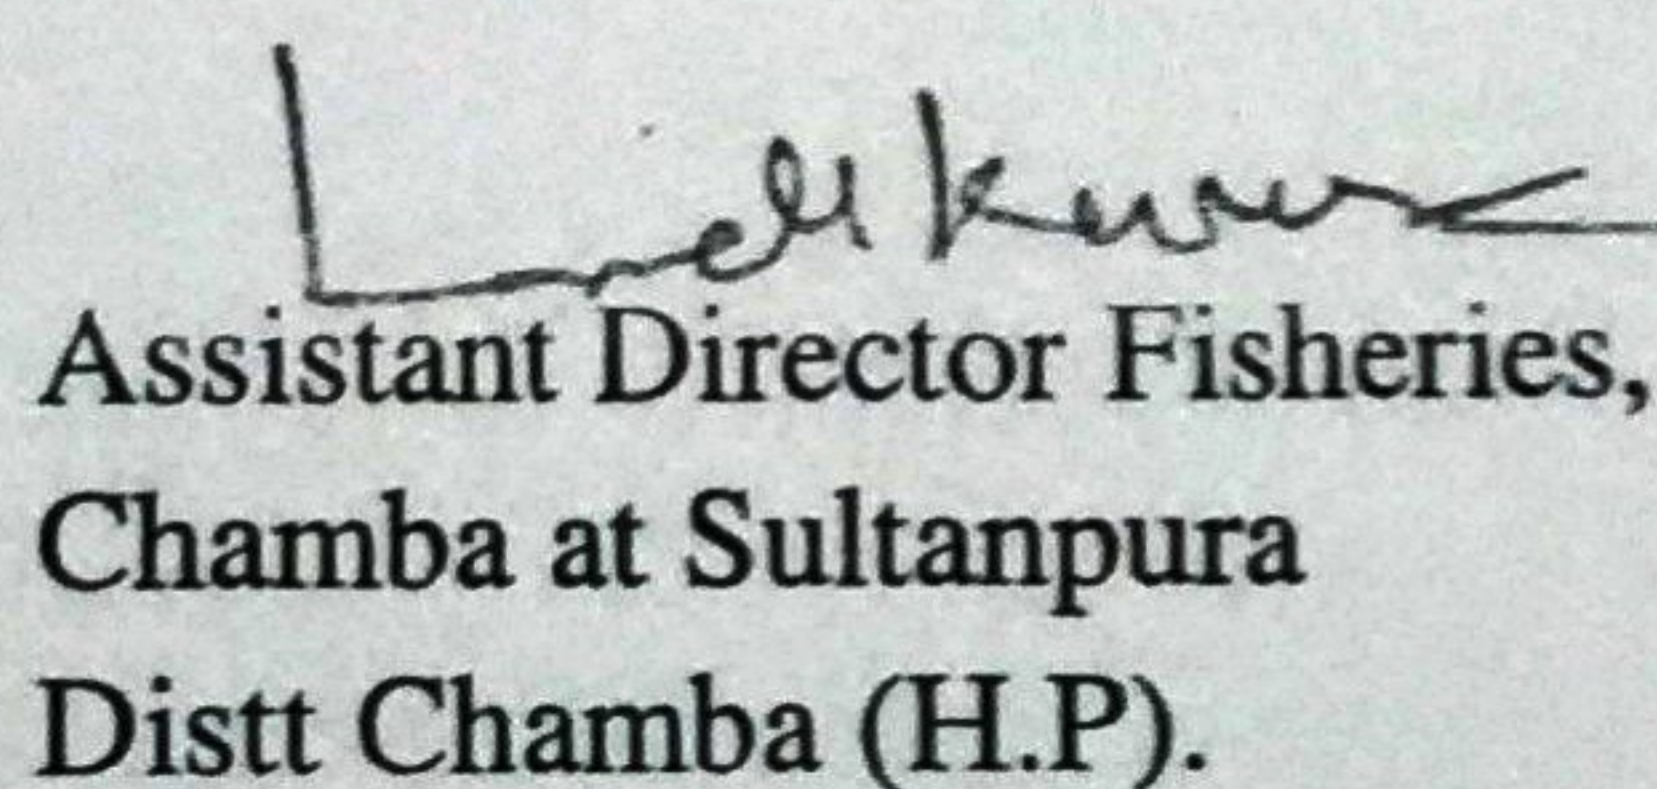 Assistant Director Fisheries,
Chamba at Sultanpura
Distt Chamba (H.P).